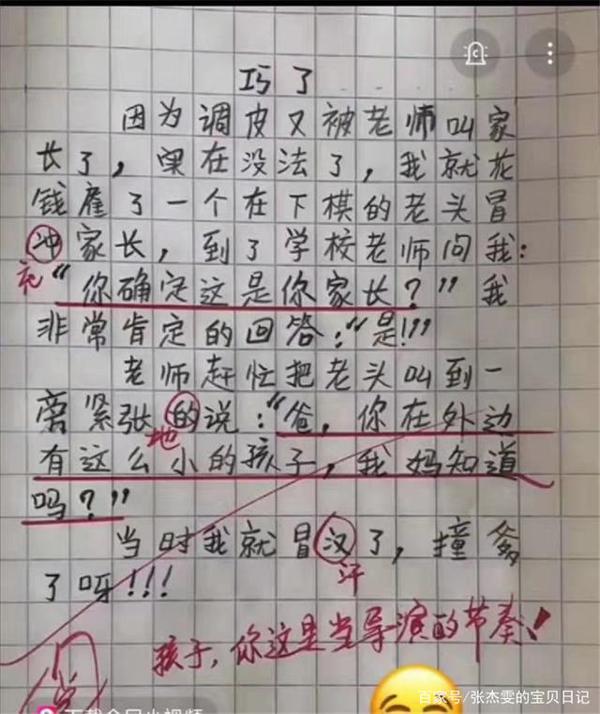 巧了
因为调皮又被老师叫家
长了，实在没法了，我就花
钱雇了一个在下棋的老头冒
冲家长，到了学校老师问我：
充
“你确定这是你家长？”我
非常肯定的回答：“是!!!
老师赶忙把老头叫到一
旁紧张的说：“爸，你在外边
地
有这么小的孩子，我妈知道
吗？”
当时我就冒汉了，撞
汗
了呀!!!
孩子，你这是当导演的节奏！
百家号/张杰雯的宝贝日记